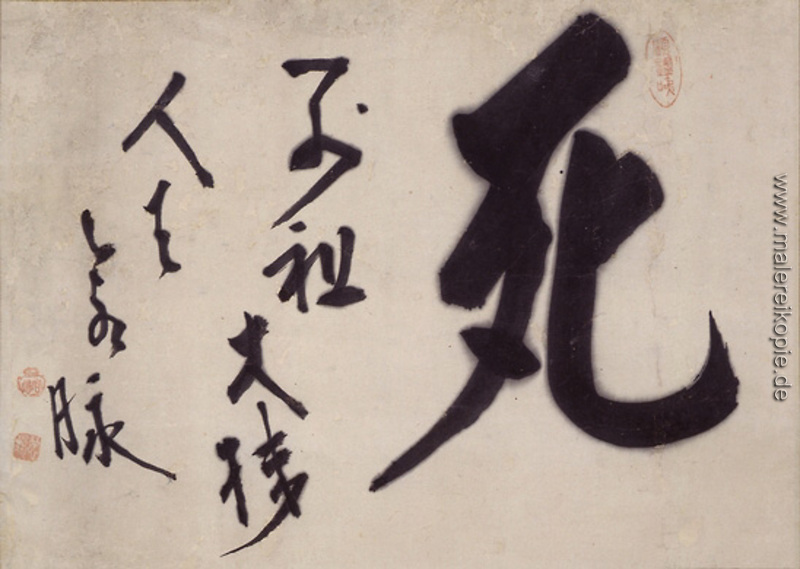 死
佛祖大機
人天命脈
www.malereikopie.de